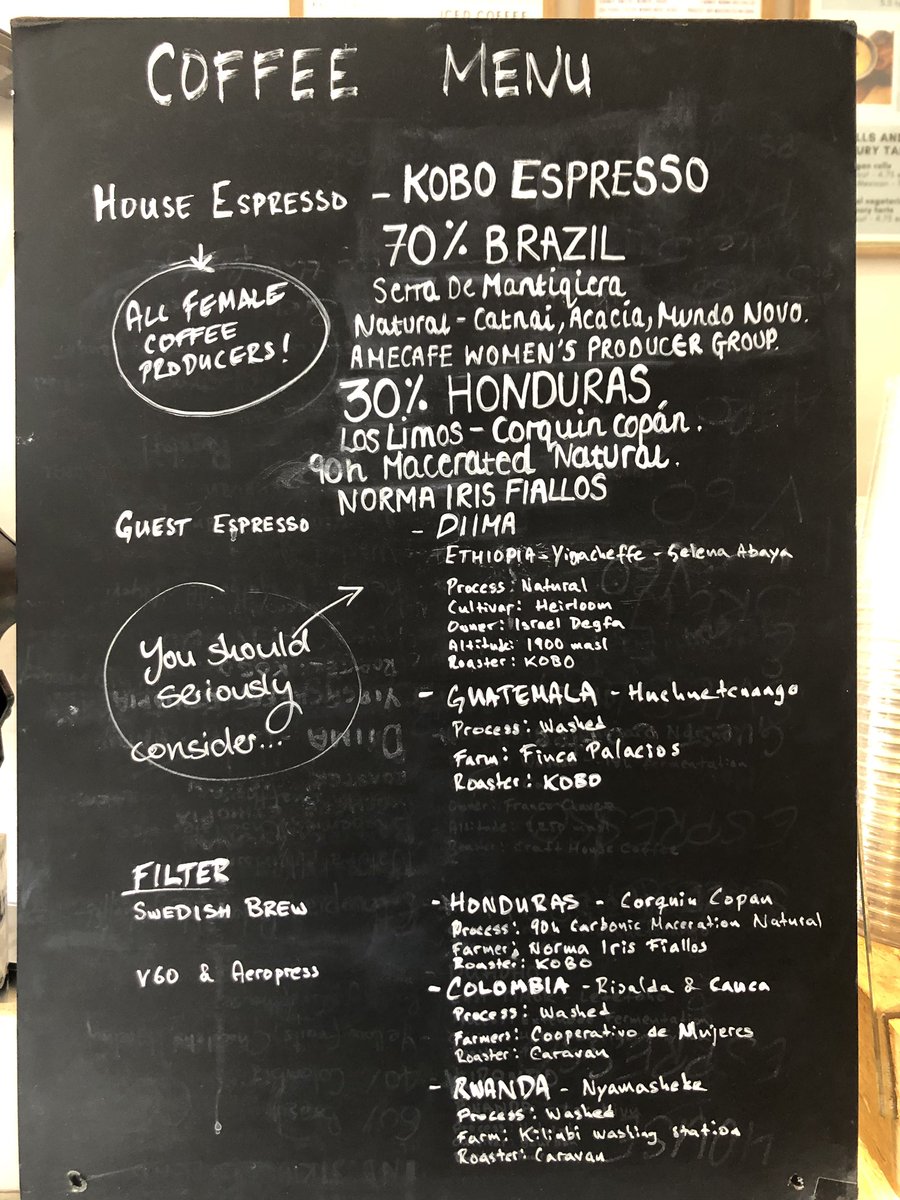 COFFEE MENU
HOUSE ESPRESSO - KOBO ESPRESSO
ALL FEMALE
COFFEE
PRODUCERS!
70% BRAZIL
Serra De Mantiqiera
Natural - Catnai, Acacia, Mundo Novo.
AMECAFE WOMEN'S PRODUCER GROUP.
30% HONDURAS
Los Limos - Corquin copán.
90h Macerated Natural.
NORMA IRIS FIALLOS
GUEST ESPRESSO - DIIMA
ETHIOPIA - Yigacheffe - Gelena Abaya
Process: Natural
Cultivar: Heirloom
Owner: Israel Degfa
Altitude: 1900 masl
Roaster: KOBO
You should
seriously
consider...
- GUATEMALA - Huehuetenango
Process: Washed
Farm: Finca Palacios
Roaster: KOBO
FILTER
SWEDISH BREW
- HONDURAS - Corquin Copan
Process: 90h Carbonic Maceration Natural
Farmer: Norma Iris Fiallos
Roaster: KOBO
V60 & Aeropress
- COLOMBIA - Risalda & Cauca
Process: Washed
Farmers: Cooperativo de Mujeres
Roaster: Caravan
- RWANDA - Nyamasheke
Process: Washed
Farm: Kilimbi Washing Station
Roaster: Caravan